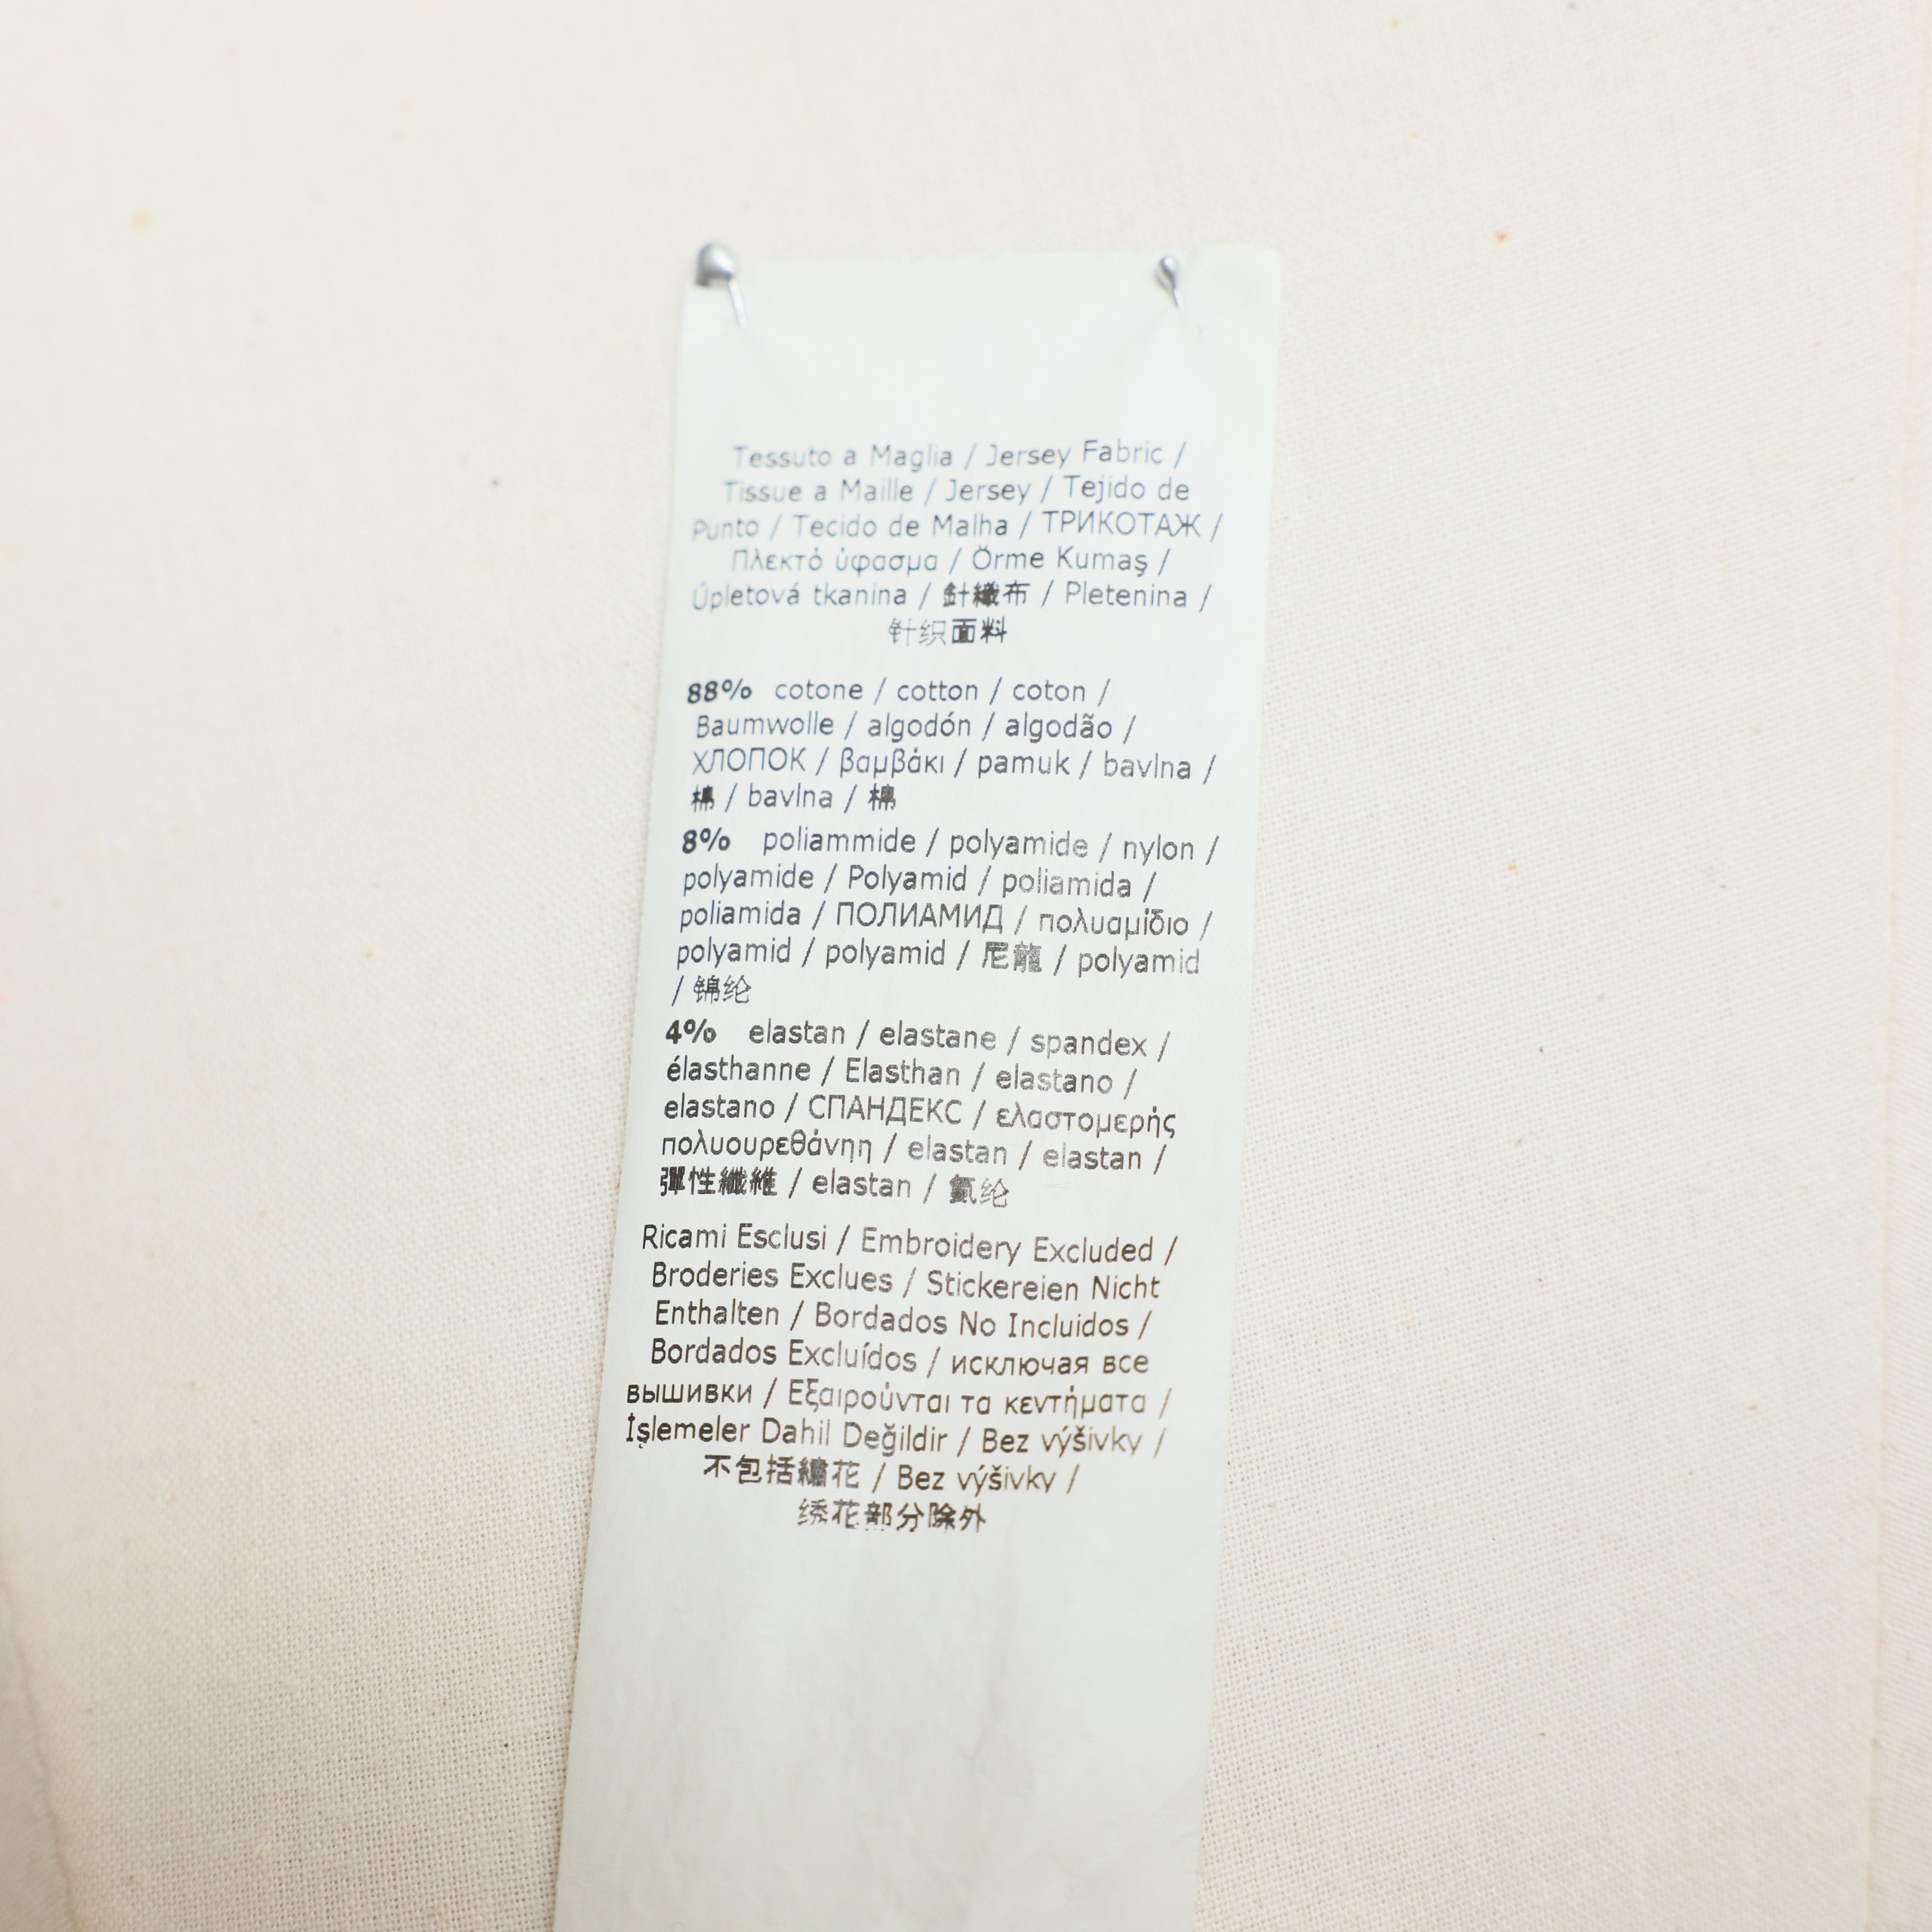 Tessuto a Maglia / Jersey Fabric /
Tissue a Maille / Jersey / Tejido de
Punto / Tecido de Malha / ТРИКОТАЖ /
Πλεκτό ύφασμα / Örme Kumaş /
Úpletová tkanina / 針織布 / Pletenina /
针织面料
88% cotone / cotton / coton /
Baumwolle / algodón / algodão /
ХЛОПОК / βαμβάκι / pamuk / bavlna /
棉 / bavlna / 棉
8% poliammide / polyamide / nylon /
polyamide / Polyamid / poliamida /
poliamida / ПОЛИАМИД / πολυαμίδιο /
polyamid / polyamid / 尼龍 / polyamid
/ 锦纶
4% elastan / elastane / spandex /
élasthanne / Elasthan / elastano /
elastano / СПАНДЕКС / ελαστομερής
πολυουρεθάνηη / elastan / elastan /
彈性纖維 / elastan / 氨纶
Ricami Esclusi / Embroidery Excluded /
Broderies Exclues / Stickereien Nicht
Enthalten / Bordados No Incluidos /
Bordados Excluídos / исключая все
вышивки / Εξαιρούνται τα κεντήματα /
İşlemeler Dahil Değildir / Bez výšivky /
不包括繡花 / Bez výšivky /
绣花部分除外